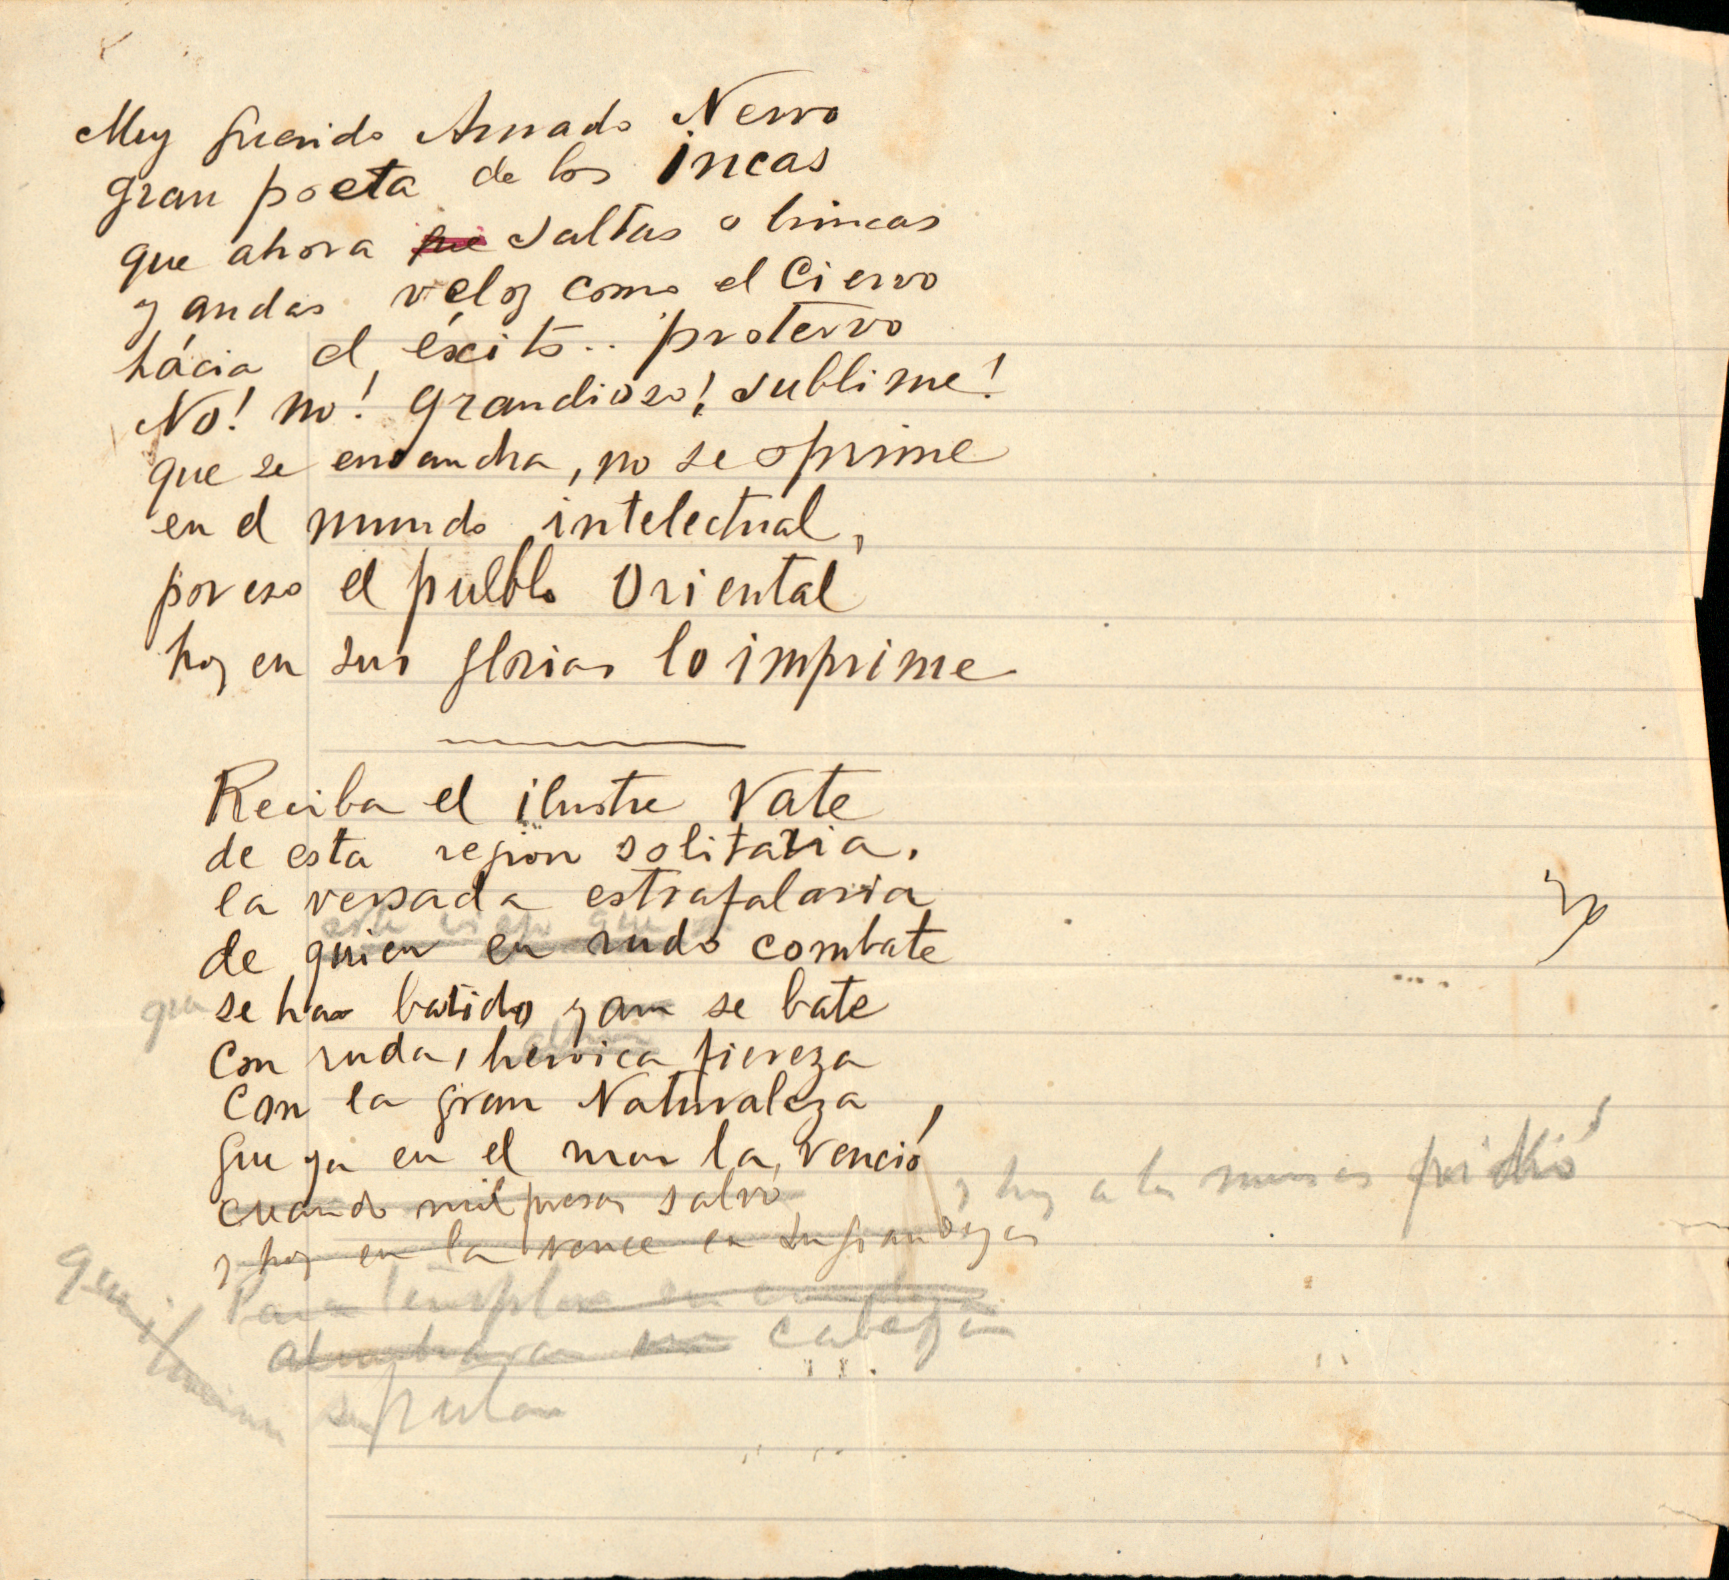 Muy querido Amado Nervo
gran poeta de los incas
que ahora que saltas o brincas
y andas veloz como el Ciervo
hácia el éxito.. protervo
No! no! grandioso! sublime!
que se ensancha, no se oprime
en el mundo intelectual,
por eso el pueblo Oriental
hoy en sus glorias lo imprime
Reciba el ilustre Vate
de esta region solitaria.
la versada estrafalaria
este viejo que
de quien en rudo combate
que se ha batido y aun se bate
con ruda, heroica fiereza
con la gran Naturaleza
que ya en el mar la venció,
y hoy a las musas pidió
cuando mil presas salvó
y hoy en la vence en su grandeza
Para
cabeza
que iluminan